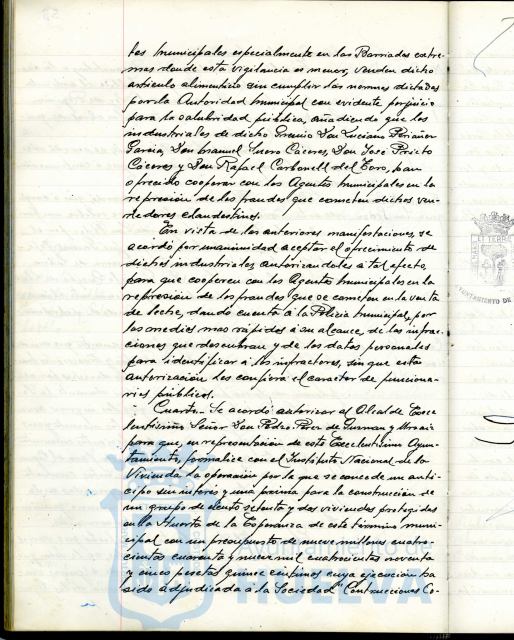 tes municipales especialmente en las Barriadas extre-
mas donde esta vigilancia es menor, venden dicho
artículo alimenticio sin cumplir las normas dictadas
por la Autoridad Municipal con evidente perjuicio
para la salubridad pública, añadiendo que los
industriales de dicho Gremio Don Luciano Periañez
Garcia, Don Manuel Suero Cáceres, Don José Prieto
Cáceres y Don Rafael Carbonell del Toro, han
ofrecido cooperar con los Agentes Municipales en la
represión de los fraudes que cometan dichos ven-
dedores clandestinos.
En vista de las anteriores manifestaciones, se
acordó por unanimidad aceptar el ofrecimiento de
dichos industriales autorizandoles a tal efecto,
para que cooperen con los Agentes Municipales en la
represión de los fraudes que se cometen en la venta
de leche, dando cuenta á la Policia Municipal, por
los medios mas rápidos á su alcance, de las infrac-
ciones que descubran y de los datos personales
para identificar a los infractores, sin que esta
autorización les confiera el caracter de funciona-
rios públicos.
Cuarto.- Se acordó autorizar al Alcalde Exce
lentísimo Señor Don Pedro Perez de Guzman y Urzaiz
para que, en representación de este Excelentísimo Ayun-
tamiento, formalice con el Instituto Nacional de la
Vivienda la operación por la que se concede un anti-
cipo sin interes y una prima para la construcción de
un grupo de ciento setenta y dos viviendas protegidas
en la Huerta de la Esperanza de este término muni-
cipal con un presupuesto de nueve millones cuatro-
cientas cuarenta y nueve mil cuatrocientas noventa
y cinco pesetas quince céntimos cuya ejecución ha
sido adjudicada a la Sociedad "Contrucciones Co-
Ayuntamiento de
HUELVA